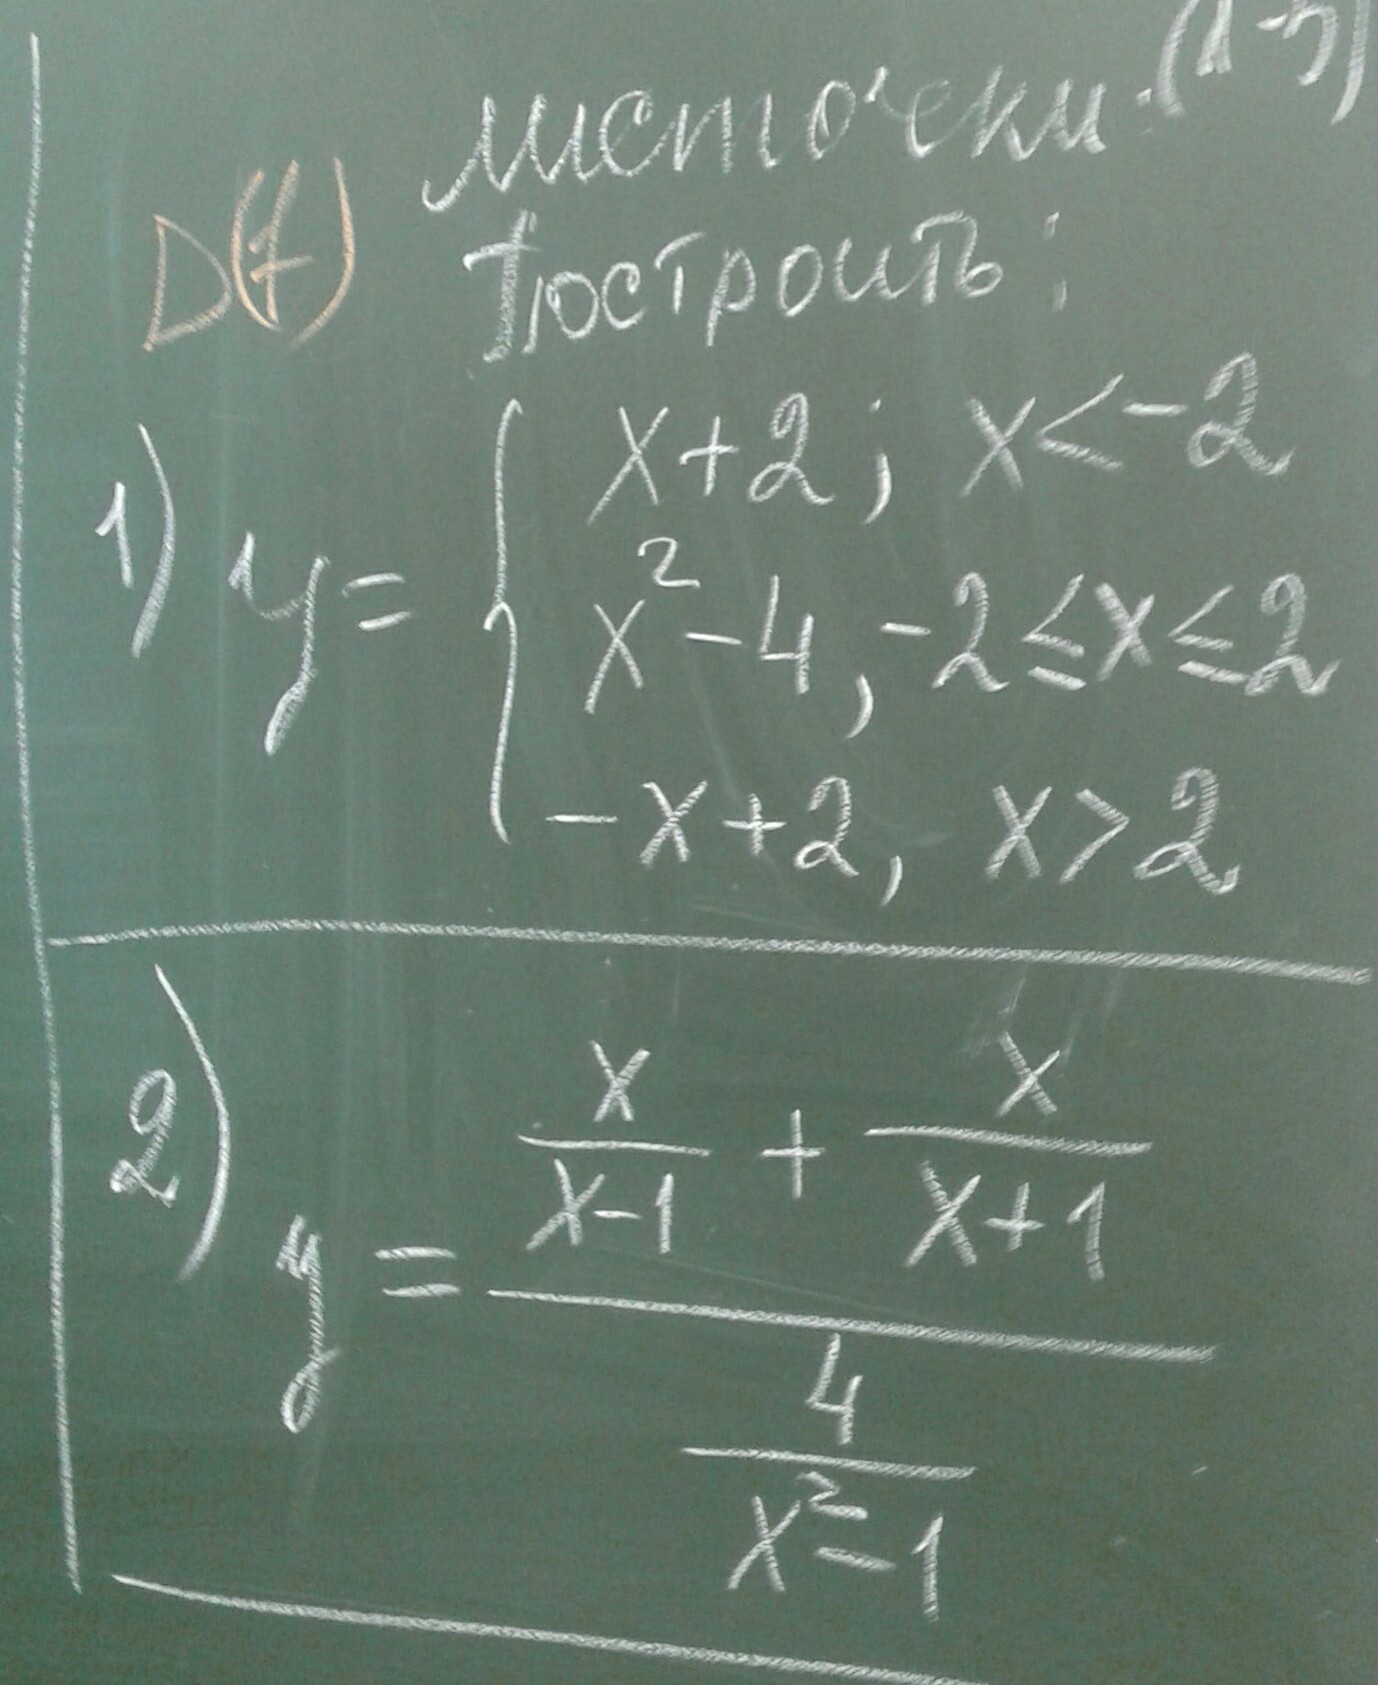 листочки. (1-5)
D(f) Построить:
1) y = { x+2; x<-2
x² -4, -2≤x≤2
-x+2, x>2
2) y = (x/(x-1) + x/(x+1)) / (4/(x²-1))